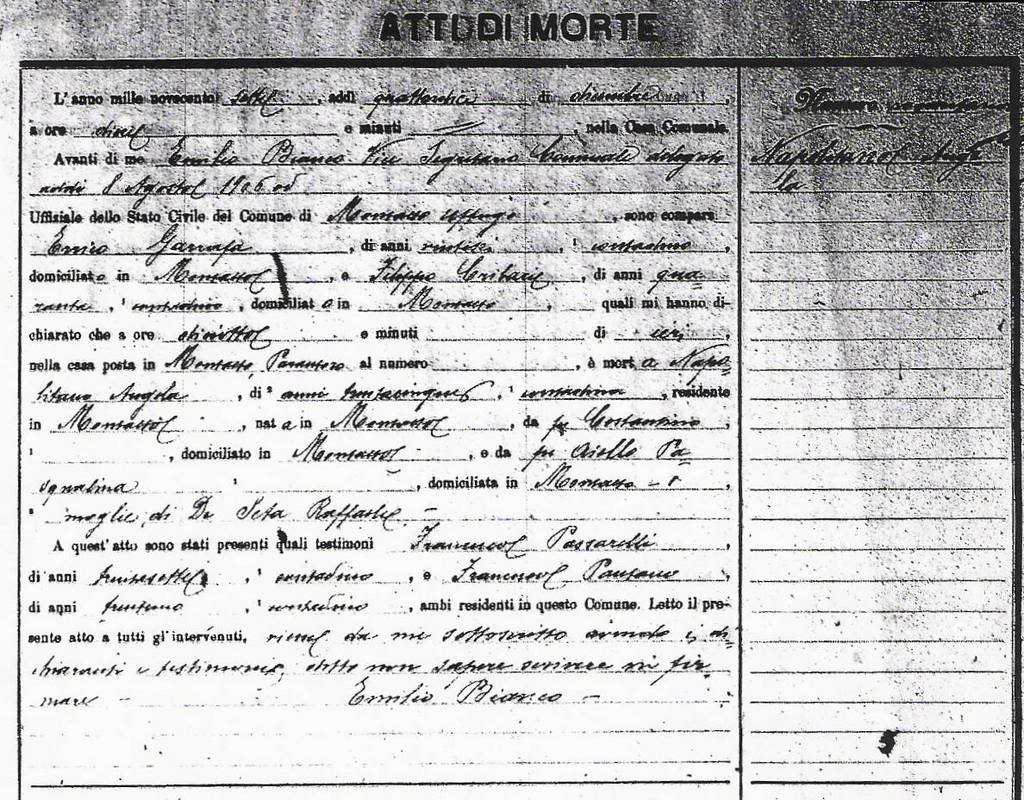 ATTI DI MORTE
L'anno mille novecento sette, addì quattordici di dicembre,
a ore dieci e minuti =, nella Casa Comunale.
Avanti di me Emilio Bianco Vice Segretario Comunale delegato
addì 8 Agosto 1906 ed
Uffiziale dello Stato Civile del Comune di Montalto Uffugo, sono comparsi
Enrico Garrafa, di anni ventisei, contadino,
domiciliato in Montalto, e Filippo Cribari, di anni qua
ranta, contadino, domiciliato in Montalto, quali mi hanno di-
chiarato che a ore diciotto e minuti di ieri
nella casa posta in Montalto, al numero, è morta Napo
litano Angela, di anni trentacinque, contadina, residente
in Montalto, nata in Montalto, da fu Costantino,
, domiciliato in Montalto, e da fu Aiello Pa
squalina, domiciliata in Montalto,
moglie di De Seta Raffaele
A quest'atto sono stati presenti quali testimoni Francesco Passarelli,
di anni trentasette, contadino, e Francesco Pansano
di anni trentuno, contadino, ambi residenti in questo Comune. Letto il pre-
sente atto a tutti gl'intervenuti, viene da me sottoscritto avendo i di
chiaranti e testimoni, detto non sapere scrivere ne fir
mare Emilio Bianco
Numero
Napolitano Ange
la